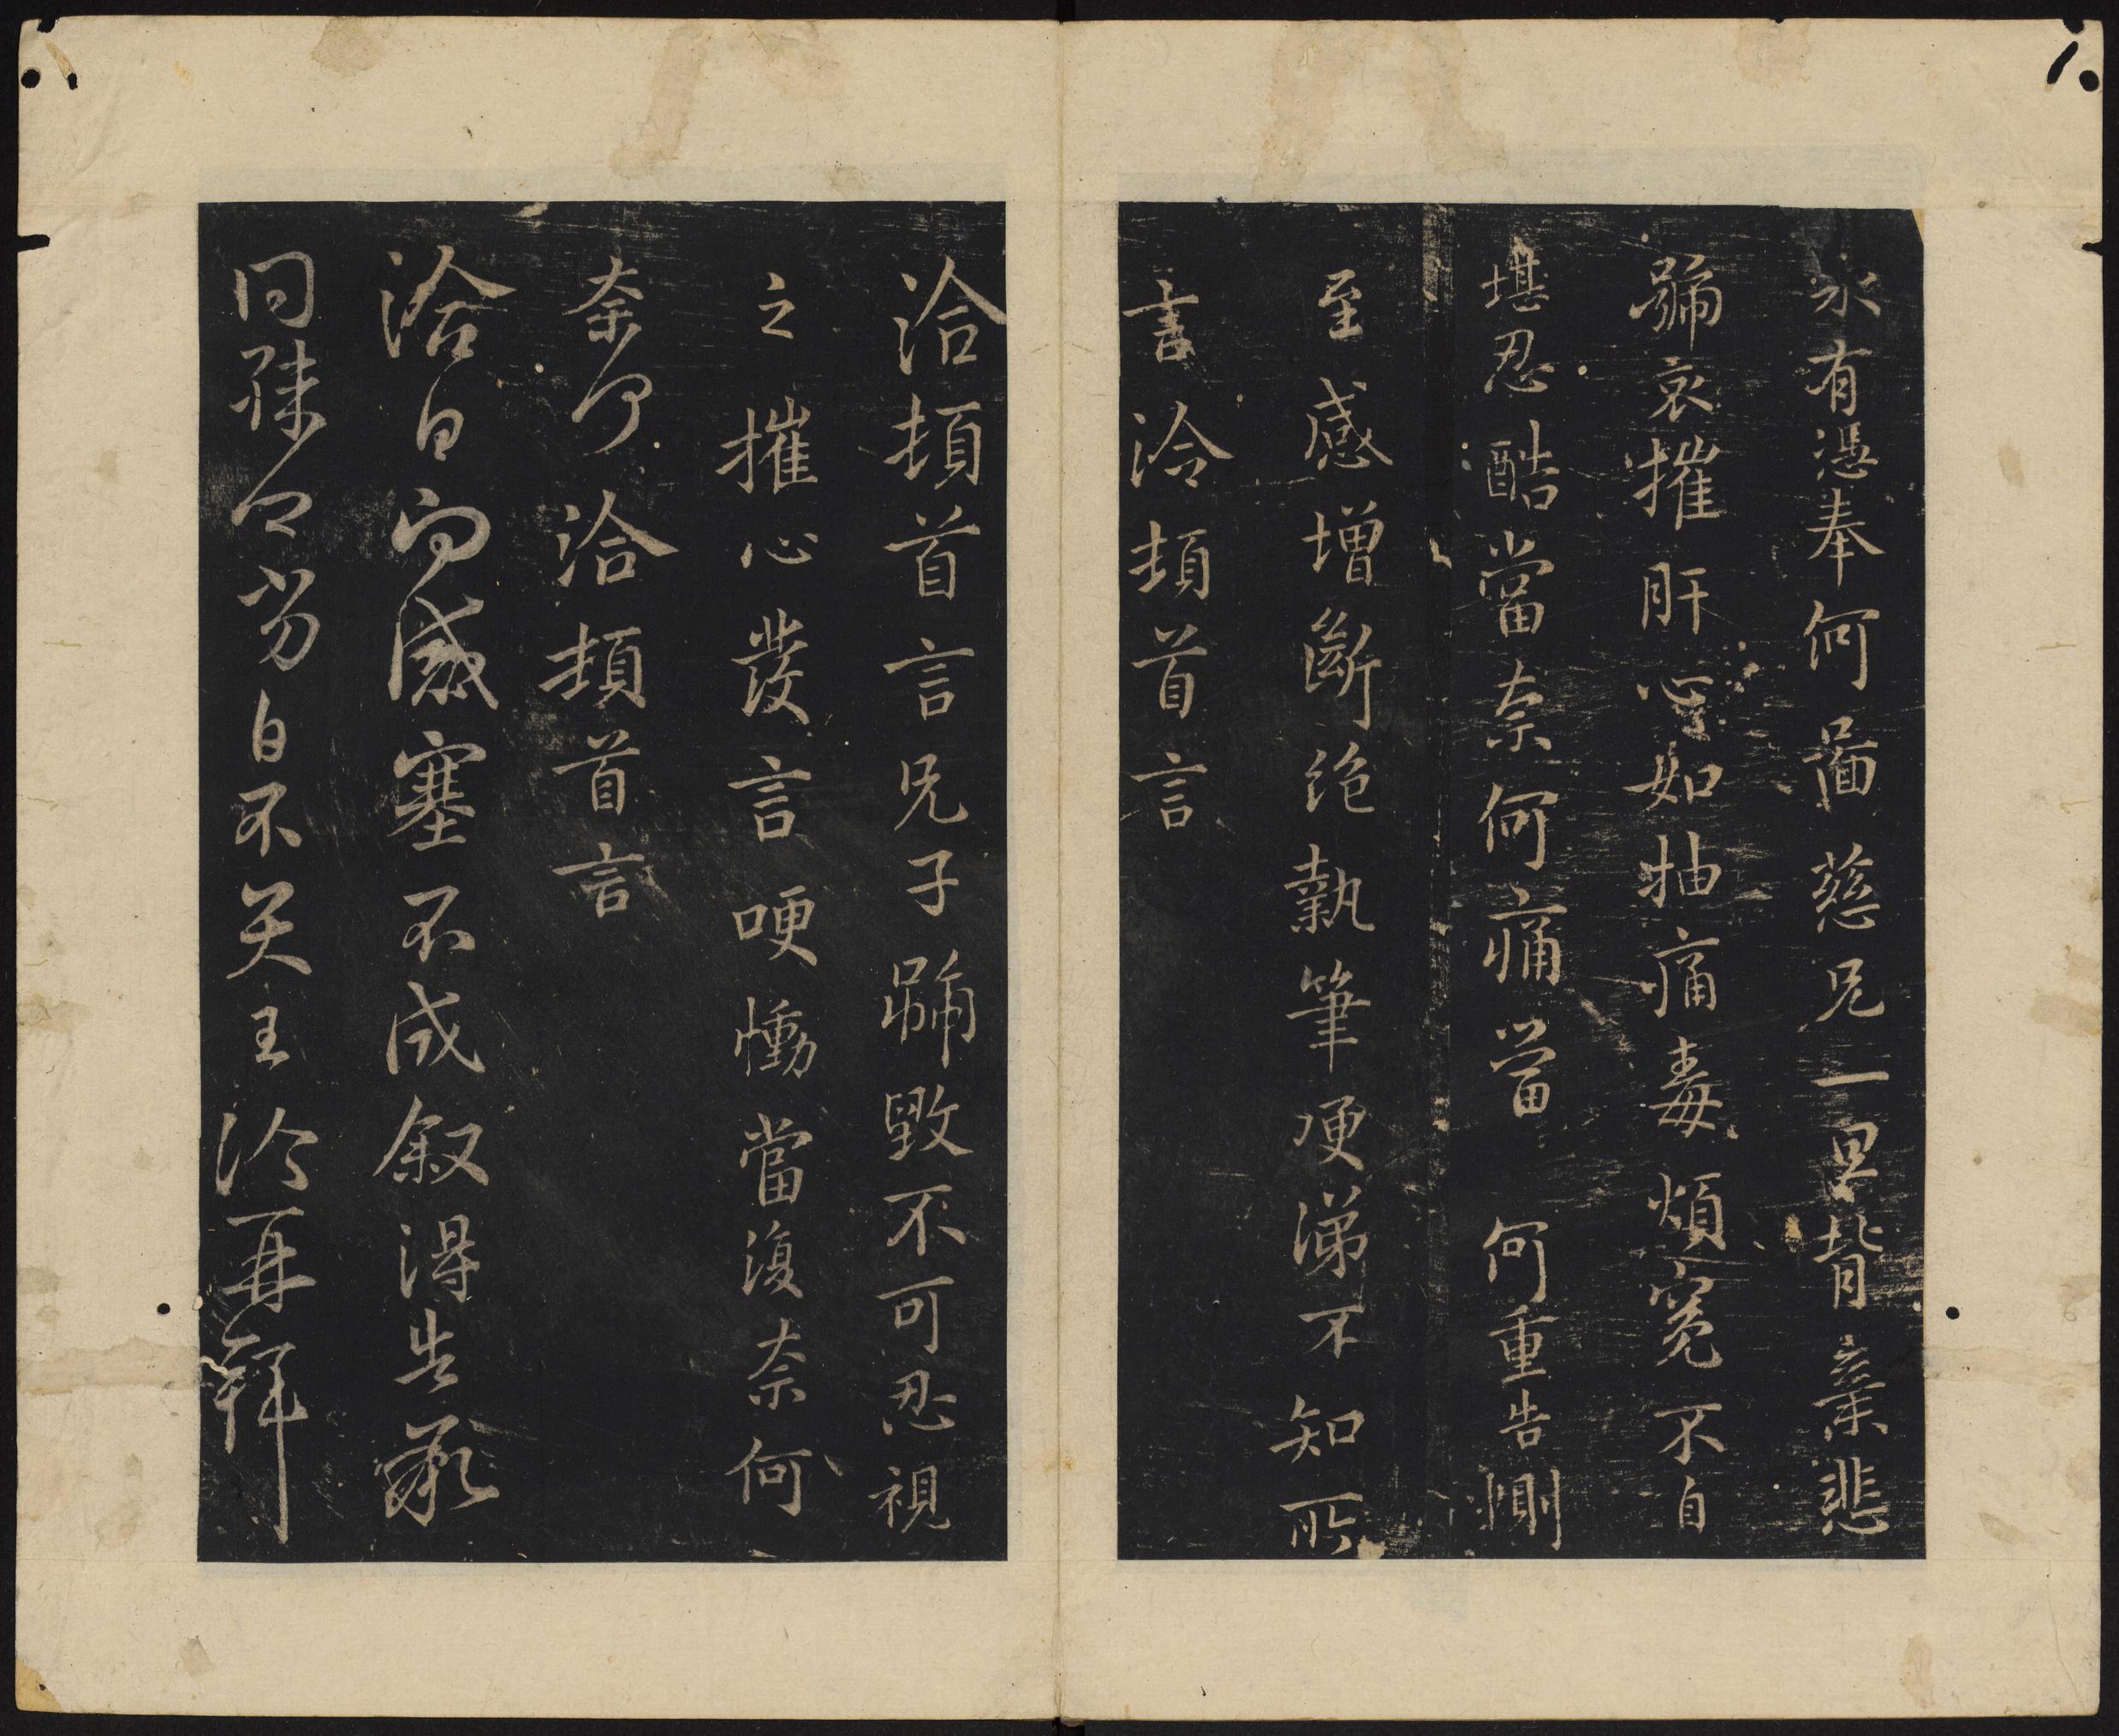 永有憑奉何啚慈兄一旦背棄悲
號哀摧肝心如抽痛毒煩冤不自
堪忍酷當奈何痛當何重告惻
至感增斷絕執筆哽涕不知所
言洽頓首言
洽頓首言兄子號毀不可忍視
之摧心發言哽慟當復奈何
奈何洽頓首言
洽白 感塞不成叙得告
同 白不 主洽再拜